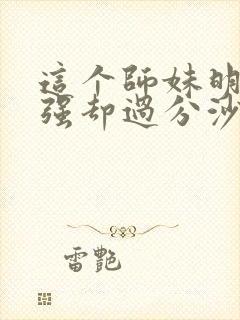 這个師妹明
强却過分沙
雷艷